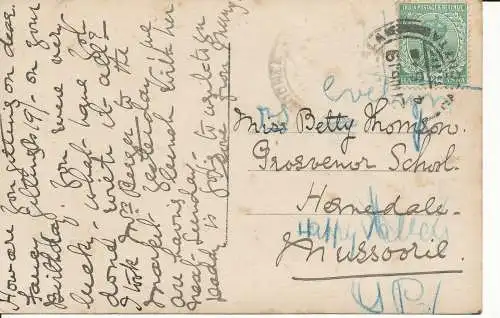 How are you getting on dear.
Fancy getting 19/- on your
Birthday. You were very
lucky. what have you
done with it all?
I took Mrs Berger to the
market yesterday. We
are having lunch with her
next Sunday.
Daddy is going to write to you
Love from Mummy
INDIA POSTAGE & REVENUE
Miss Betty Thomson.
Grosvenor School.
Horndale.
Mussoorie.
U.P.
Happy